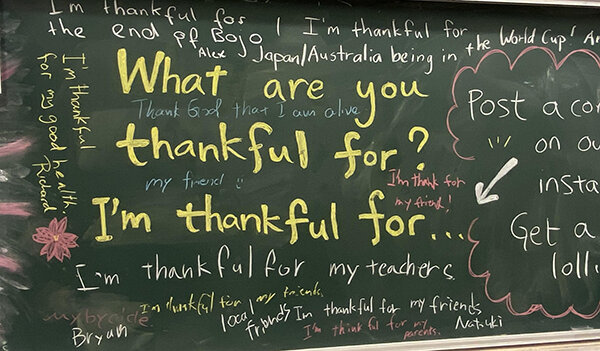 I'm thankful for
the end of Bojo
Alex
I'm thankful for
Japan/Australia being in the World Cup!
I'm thankful
for my good health.
Richard
What are you
Thank God that I am alive
thankful for?
my friend
I'm thank for
my friend!
I'm thankful for...
I'm thankful for my teachers
Post a co
on ou
insta
Get a
loll
I'm thankful for my friends.
local
friends
I'm thankful for my friends
Natsuki
I'm think ful for my
parents.
Bryan